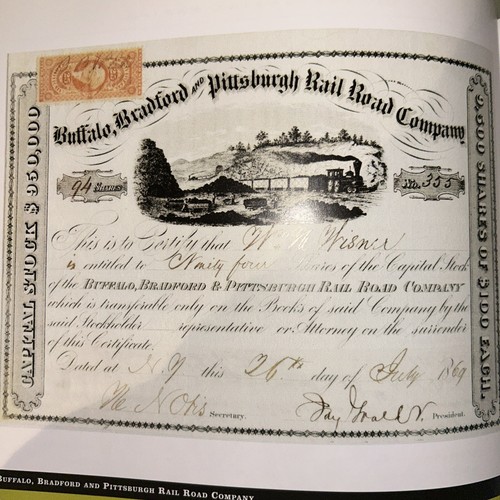 Buffalo, Bradford AND Pittsburgh Rail Road Company
94 SHARES
No. 355
CAPITAL STOCK $950,000
9,500 SHARES OF $100 EACH.
This is to Certify that W. M. Wisner
is entitled to Ninety four Shares of the Capital Stock
of the BUFFALO, BRADFORD & PITTSBURGH RAIL ROAD COMPANY
which is transferable only on the Books of said Company by the
said Stockholder representative or Attorney on the surrender
of this Certificate.
Dated at N.Y. this 26th day of July 1869
H N Otis Secretary. Jay Gould President.
BUFFALO, BRADFORD AND PITTSBURGH RAIL ROAD COMPANY